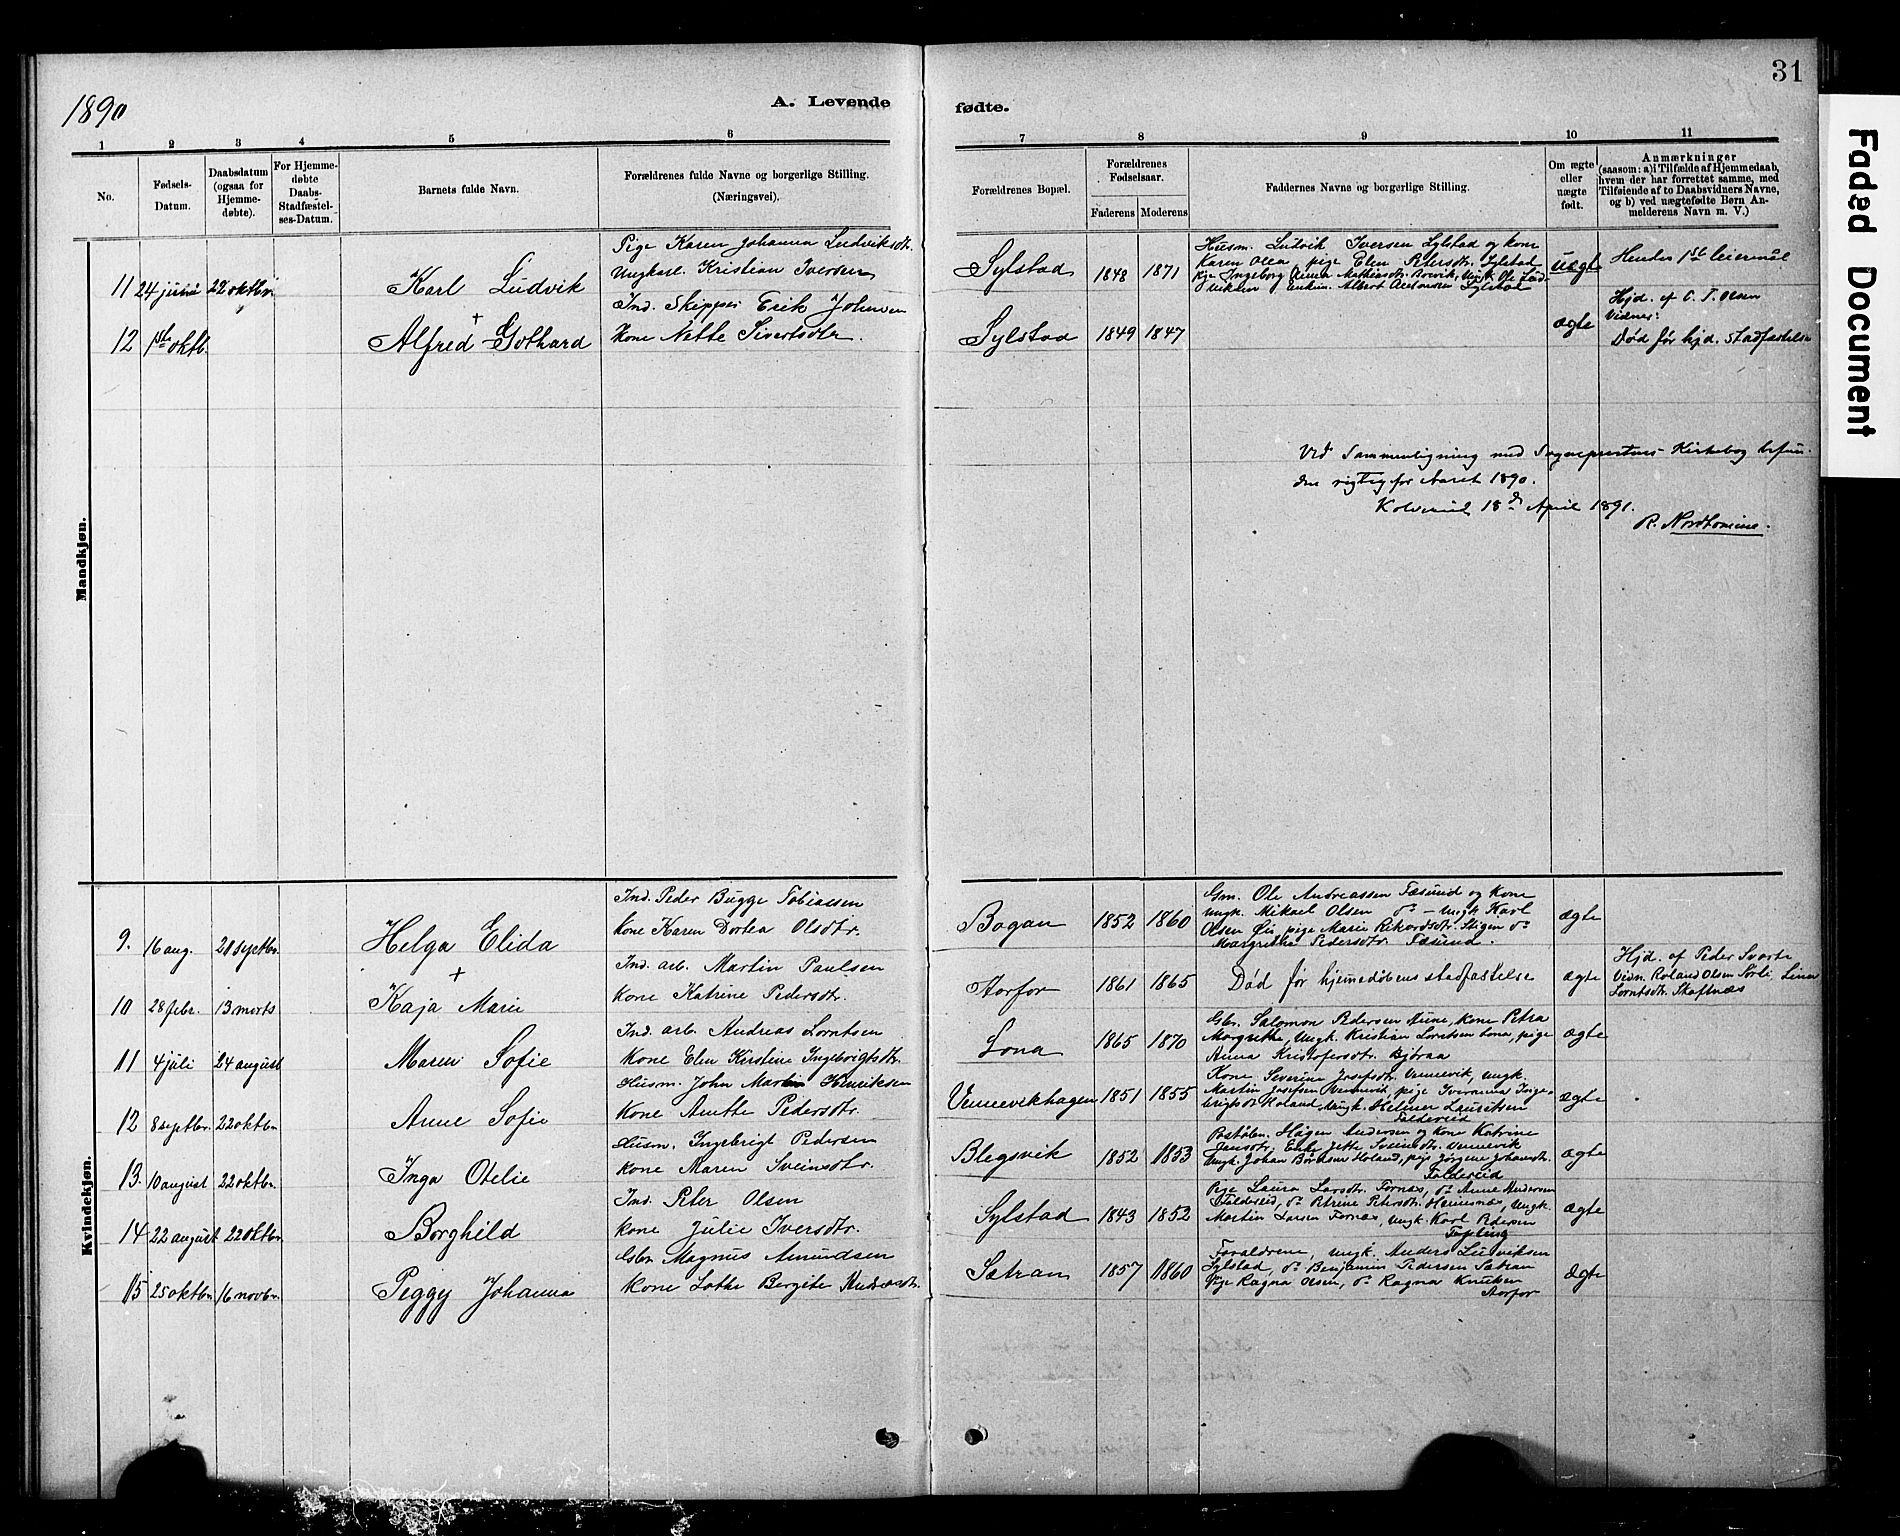 31
1890
A. Levende fødte.
1 2 3 4 5 6 7 8 9 10 11
No.
Fødsels-Datum.
Daabsdatum (ogsaa for Hjemme-døbte).
For Hjemme-døbte Daabs-Stadfæstel-ses-Datum.
Barnets fulde Navn.
Forældrenes fulde Navne og borgerlige Stilling. (Næringsvei).
Forældrenes Bopæl.
Forældrenes Fødselsaar.
Faderens Moderens
Faddernes Navne og borgerlige Stilling.
Om ægte eller uægte født.
Anmærkninger (saasom: a) i Tilfælde af Hjemmedaab, hvem der har forrettet samme, med Tilføiende af to Daabsvidners Navne, og b) ved uægtefødte Børn An-melderens Navn m. V.)
Faded Document
Mandkjøn.
Pige Karen Johanna Ludviksdtr.
Ungkarl Kristian Iversen
11 24 juni 22 oktbr. Karl Ludvik
Sylstad 1848 1871
Husm. Ludvik Iversen Sylstad og kone
Karen Olea, pige Elen Petersdtr. Sylstad
uægte
Hendes 1ste leiermål
Ind. Skipper Erik Johnsen
Kone Nette Sivertsdtr.
12 1ste oktb. + Alfred Gothard
Sylstad 1849 1847
ægte
Hjd. af C. T. Olsen
Vidner:
Død før hjd. stadfæstelse
Ved Sammenligning med Sognepræstens Kirkebog befun-
den rigtig for Aaret 1890.
Kolvereid 18de April 1891.
Kvindekjøn.
Ind. Peder Bugge Tobiassen
Kone Karen Dortea Olsdtr.
9. 16 aug. 21 septbr. Helga Elida
Bogan 1852 1860
Gm. Ole Andreassen Fæsund og Kone
Ungk. Mikael Olsen do - Ungk Karl
Olsen Øie pige Marie Rikardsdtr. Stigen do
Margrethe Pedersdtr. Fæsund.
ægte
Ind. arb. Martin Paulsen
Kone Katrine Pedersdtr.
10 28 febr. 13 marts + Kaja Marie
Aarfor 1861 1865
Død før hjemmedøbens stadfæstelse
ægte
Hjd. af Peder Svarte
Vidn. Roland Olsen Sørli, Lina
Lorntsdtr. Skaftnæs
Ind. arb. Andreas Lorntsen
Kone Elen Kirstine Ingebrigtsdtr.
11 4 juli 24 august Maren Sofie
Lona 1865 1870
Gbr. Salomon Pedersen Mune, Kone Petra
Margrethe, Ungk. Kristian Lorntsen Lona, pige
Anna Kristofersdtr. Bjøraa
ægte
Husm. John Martin Henriksen
Kone Anette Pedersdtr.
12 8 septbr. 22 oktbr. Anne Sofie
Vennevikhagen 1851 1855
Kone Severine Josefsdtr. Vennevik, Ungk.
Martin Josefsen Vennevik, pige Iverinna Inge-
brigtsdt Holand, Ungk. Helmer Lauritsen
Foldereid
ægte
Husm. Ingebrigt Pedersen
Kone Maren Sveinsdtr.
13. 10 august 22 oktbr. Inga Otelie
Blegsvik 1852 1853
Poståbn. Hågen Andersen og Kone Katrine
Ungk. Johan Bårdsen Holand, pige Jørgine Johansdtr.
Foldereid
ægte
Ind. Peter Olsen
Kone Julie Iversdtr.
14 22 august 22 oktbr. Borghild
Sylstad 1843 1852
Pige Laura Larsdtr. Fornæs, do Anne Andersen
Foldereid, do Petrine Petersdtr. Hemnæs, Ungk.
Martin Larsen Fornæs, Ungk. Karl Pedersen
ægte
Gbr. Magnus Amundsen
Kone Lotte Bergite Andreasdtr.
15 25 oktbr. 16 novbr. Peggy Johanna
Sætran 1857 1860
Forældrene, Ungk. Anders Ludviksen
Sylstad, do Benjamin Pedersen Sætran
Pige Ragna Olsen, do Ragna Knutsen
Aarfor
ægte